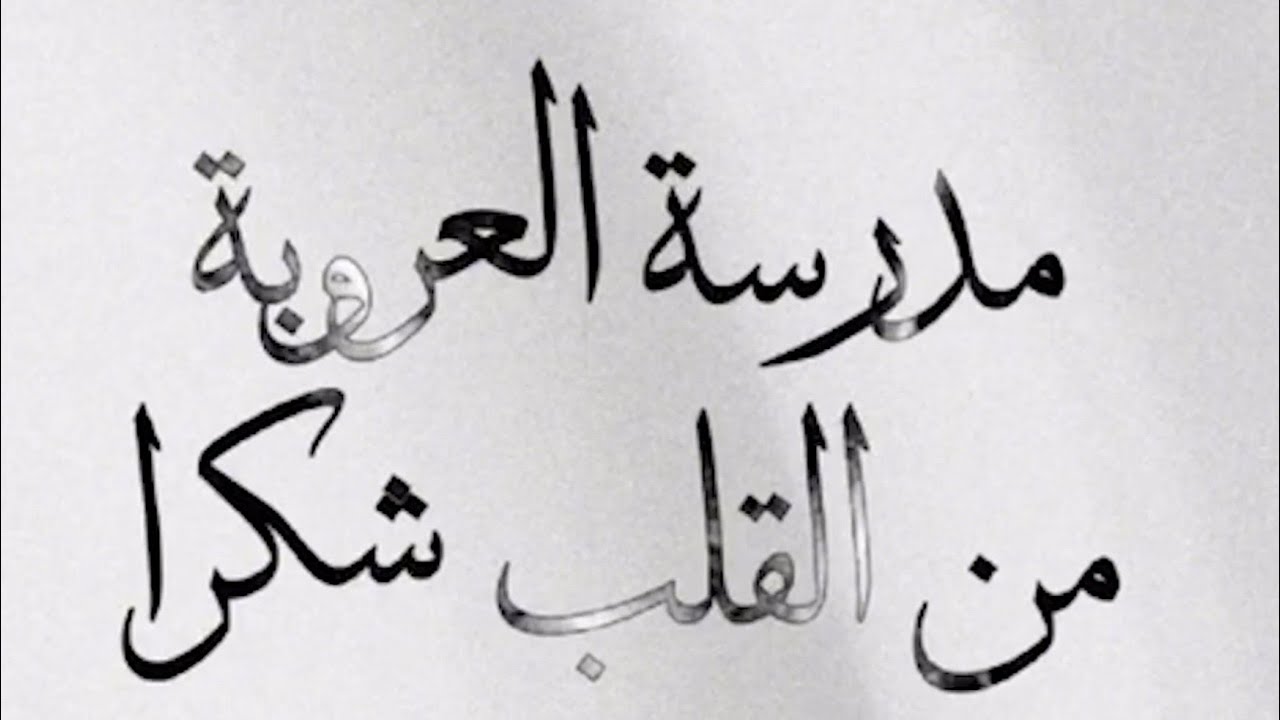 مدرسة العروبة
من القلب شكرا